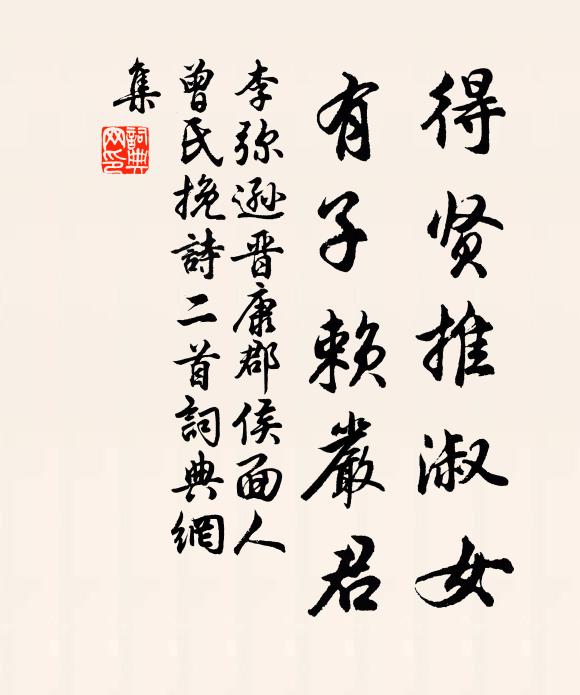 得贤推淑女
有子赖嚴君
李弥遜晋康郡侯面人
曾氏挽詩二首詞典網
集
詞典网印